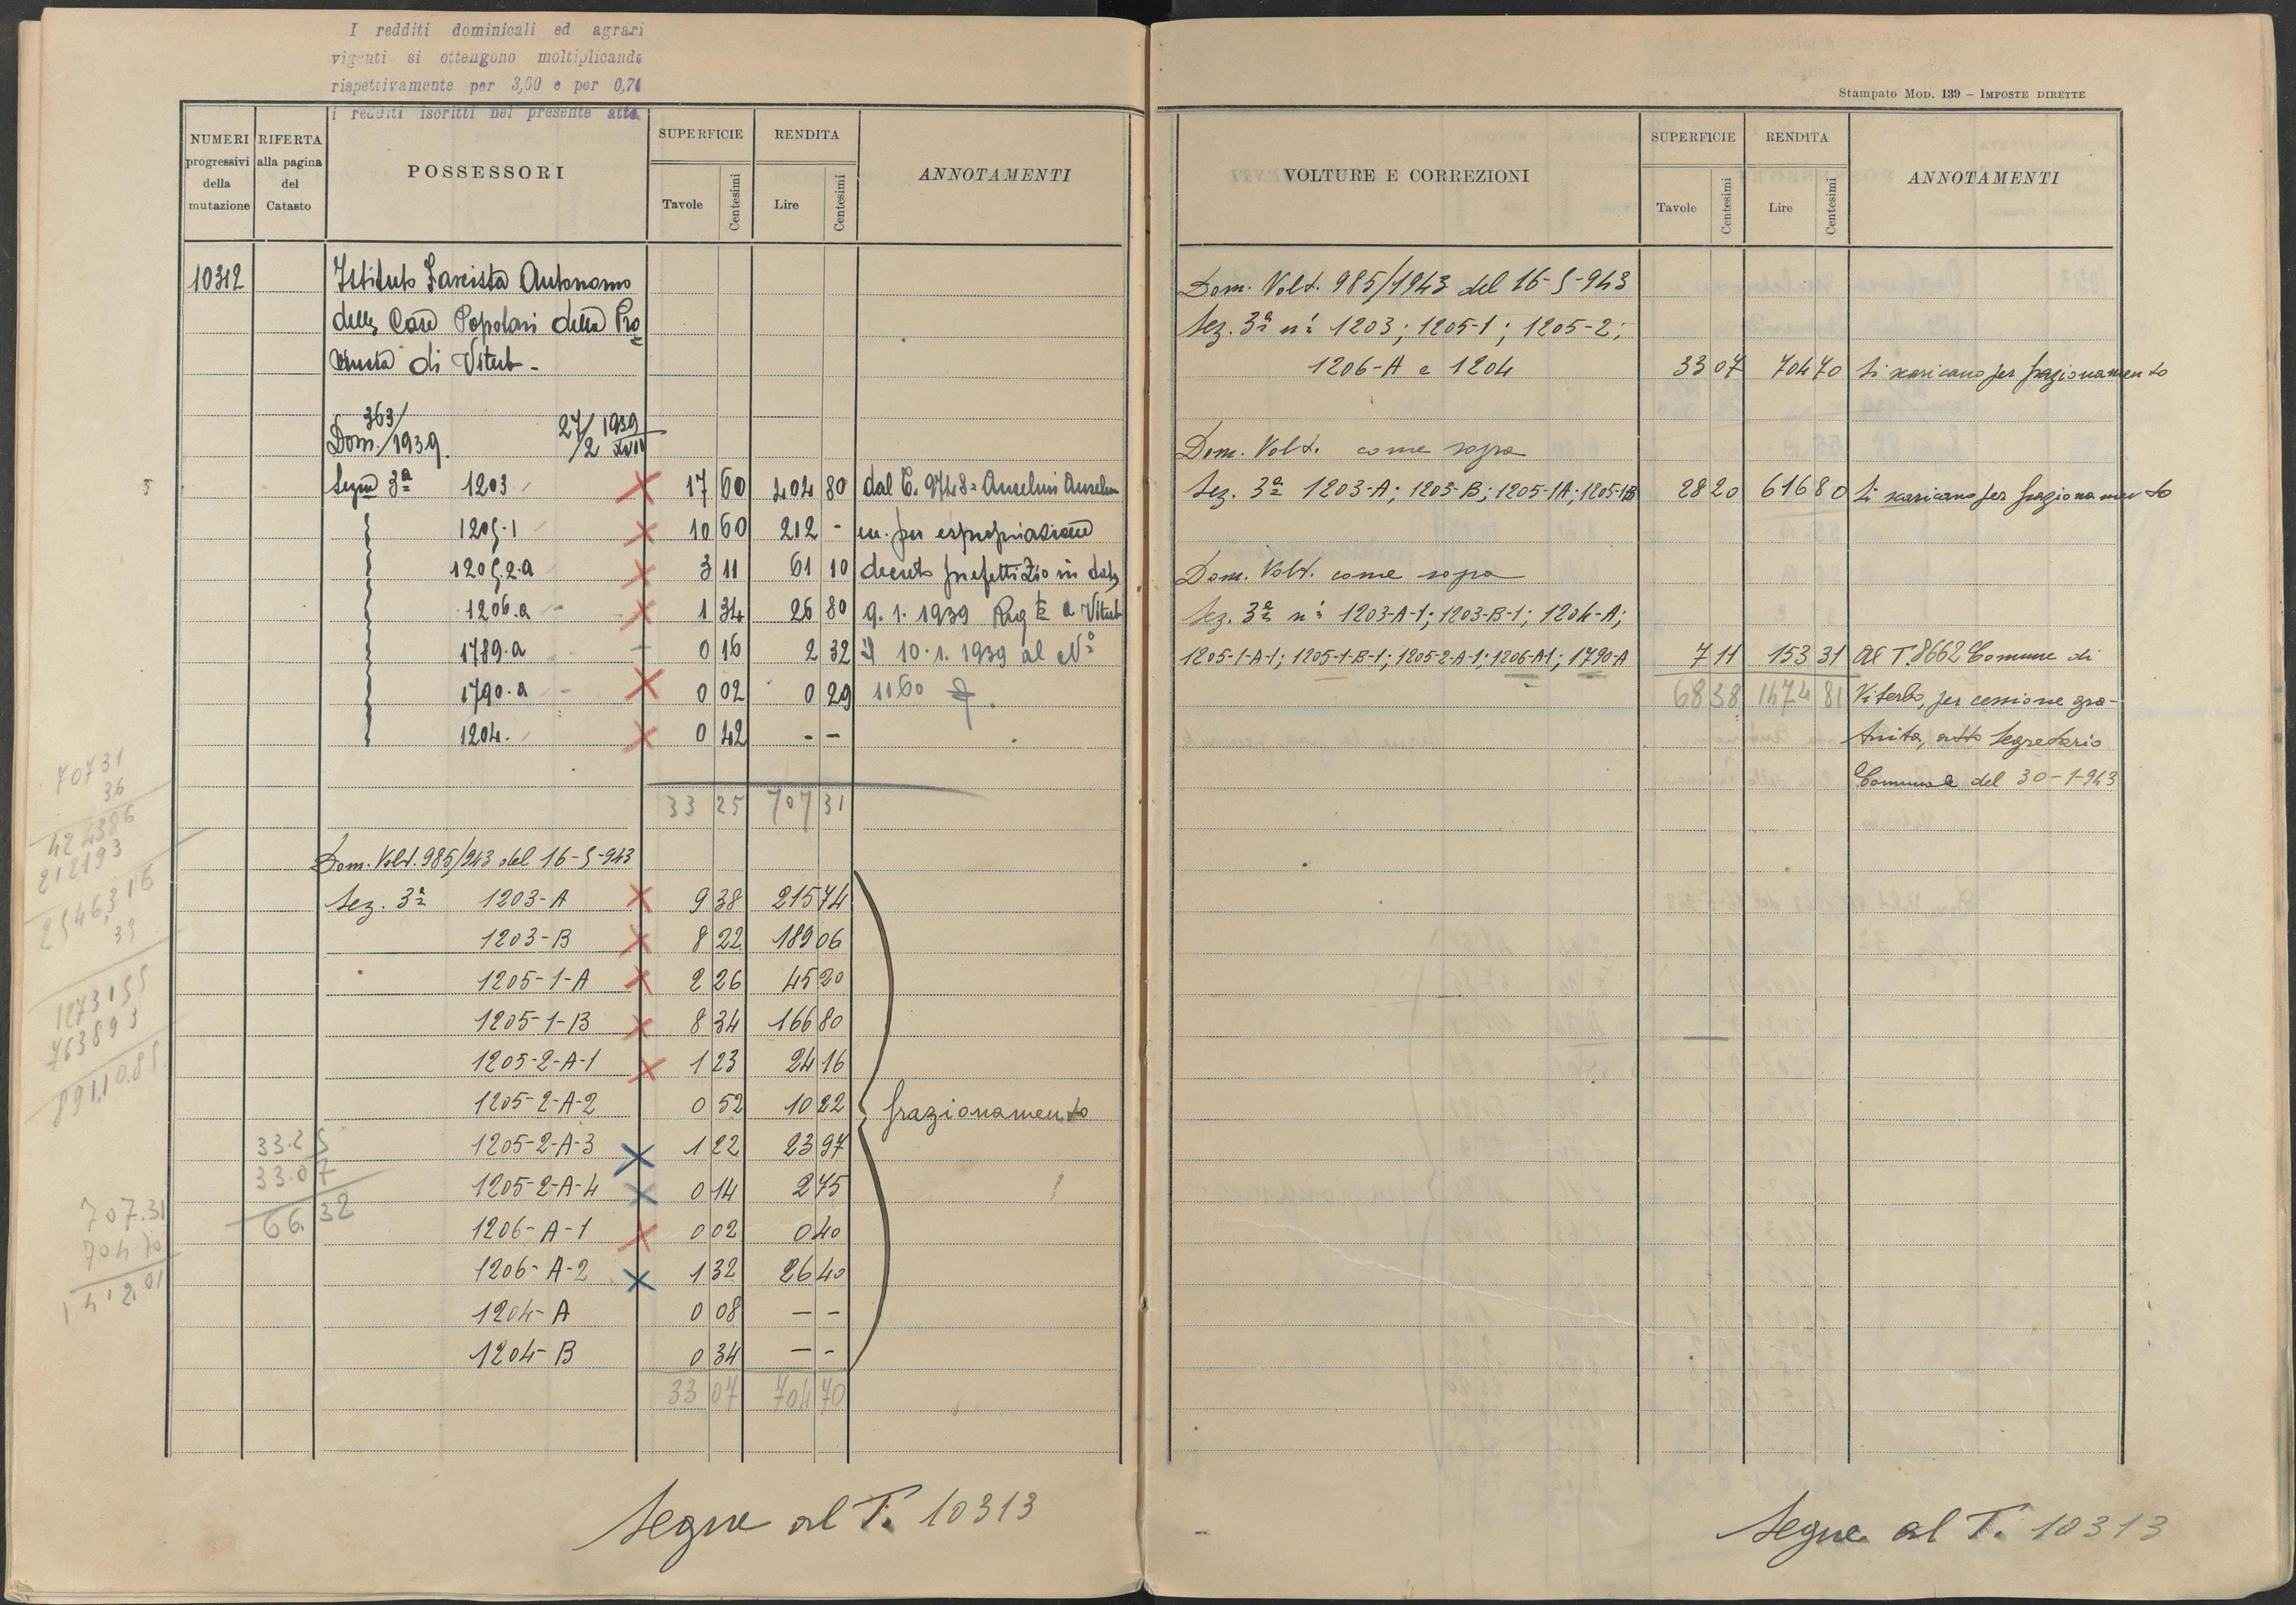 I redditi dominicali ed agrari
vigenti si ottengono moltiplicando
rispettivamente per 3,60 e per 0,71
i redditi iscritti nel presente atto.
NUMERI progressivi della mutazione
RIFERTA alla pagina del Catasto
POSSESSORI
SUPERFICIE
Tavole Centesimi
RENDITA
Lire Centesimi
ANNOTAMENTI
10312 Istituto Fascista Autonomo
delle Case Popolari della Pro
vincia di Viterb-
363/
Dom./1939. 27/2 1939 XVII
Segna 3ª 1203 17 60 404 80 dal T. 9748 = Anselmi Anselm
1205.1 10 60 212 - per espropriazione
1205.2.a 3 11 61 10 decreto prefettizio in data
1206.a 1 34 26 80 9.1.1939 Reg a Viterb
1789.a 0 16 2 32 il 10.1.1939 al Nº
1790.a 0 02 0 29 1160
1204. 0 42 - -
33 25 707 31
Dom. Volt. 985/943 del 16-5-943
Sez. 3ª 1203-A 9 38 215 74
1203-B 8 22 189 06
1205-1-A 2 26 45 20
1205-1-B 8 34 166 80
1205-2-A-1 1 23 24 16
1205-2-A-2 0 52 10 22 frazionamento
1205-2-A-3 1 22 23 97
1205-2-A-4 0 14 2 75
1206-A-1 0 02 0 40
1206-A-2 1 32 26 40
1204-A 0 08 - -
1204-B 0 34 - -
33 07 704 70
Segue al T. 10313
70731
36
424386
212193
2546316
33.25
33.07
66.32
707.31
704 70
1412,01
Stampato MOD. 139 – IMPOSTE DIRETTE
VOLTURE E CORREZIONI
SUPERFICIE
Tavole Centesimi
RENDITA
Lire Centesimi
ANNOTAMENTI
Dom. Volt. 985/1943 del 16-5-943
Sez. 3ª ni 1203; 1205-1; 1205-2;
1206-A e 1204 33 07 704 70 Si scaricano per frazionamento
Dom. Volt. come sopra
Sez. 3ª 1203-A; 1203-B; 1205-1A; 1205-1B 28 20 616 80 Si scaricano per frazionamento
Dom. Volt. come sopra
Sez. 3ª ni 1203-A-1; 1203-B-1; 1204-A;
1205-1-A-1; 1205-1-B-1; 1205-2-A-1; 1206-A-1; 1790-A 7 11 153 31 Al T. 8662 Comune di
68 38 1474 81 Viterbo, per cessione gra-
tuita, atto Segretario
Comunale del 30-1-943
Segue al T. 10313